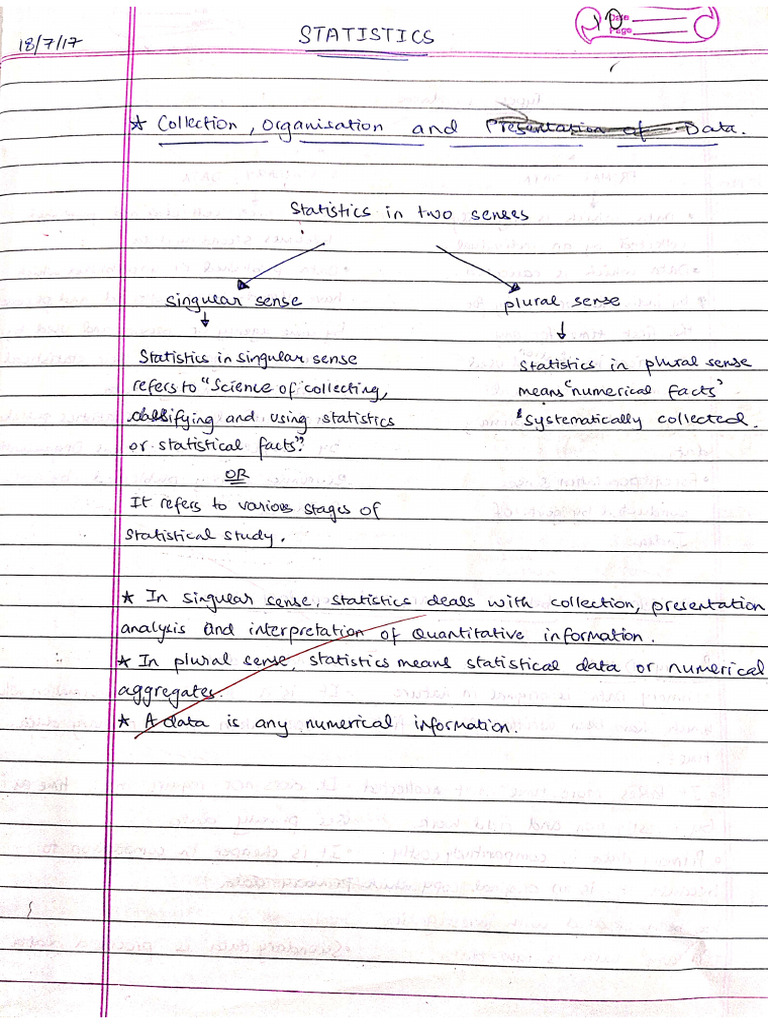 18/7/17
STATISTICS
Date
Page
* Collection, Organisation and Presentation of Data.
Statistics in two senses
singular sense
plural sense
Statistics in singular sense
refers to "Science of collecting,
classifying and using statistics
or statistical facts".
OR
It refers to various stages of
Statistical study.
Statistics in plural sense
means "numerical facts"
"systematically collected.
* In singular sense, statistics deals with collection, presentation
analysis and interpretation of Quantitative information.
* In plural sense, statistics means statistical data or numerical
aggregates.
* A data is any numerical information.